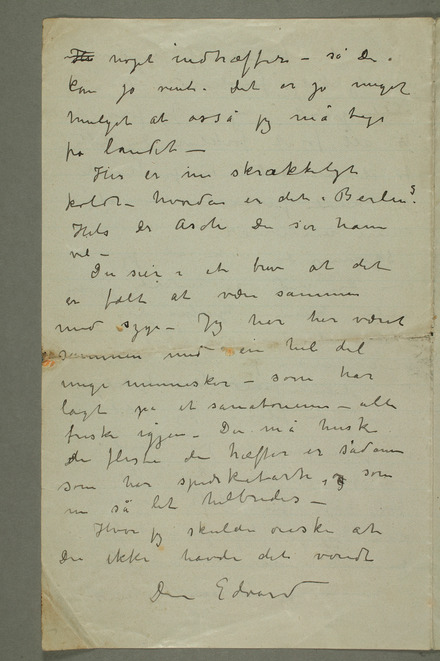 noget indtræffer – så Du
kan jo vente. Det er jo meget
muligt at også jeg må tage
på landet –
Her er nu skrækkeligt
koldt – hvordan er det i Berlin?
Hils Dr Asch Du sier ham
vel –
Du sier i et brev at det
er fælt at være sammen
med syge – Jeg har her været
sammen med en hel del
unge mennesker – som har
lagt på et sanatorium – alle
friske igjen – Du må huske
de fleste du træffer er sådanne
som har spidskatarh, og som
nu så let helbredes –
Hvor jeg skulde ønske at
Du ikke havde det vondt
Din Edvard